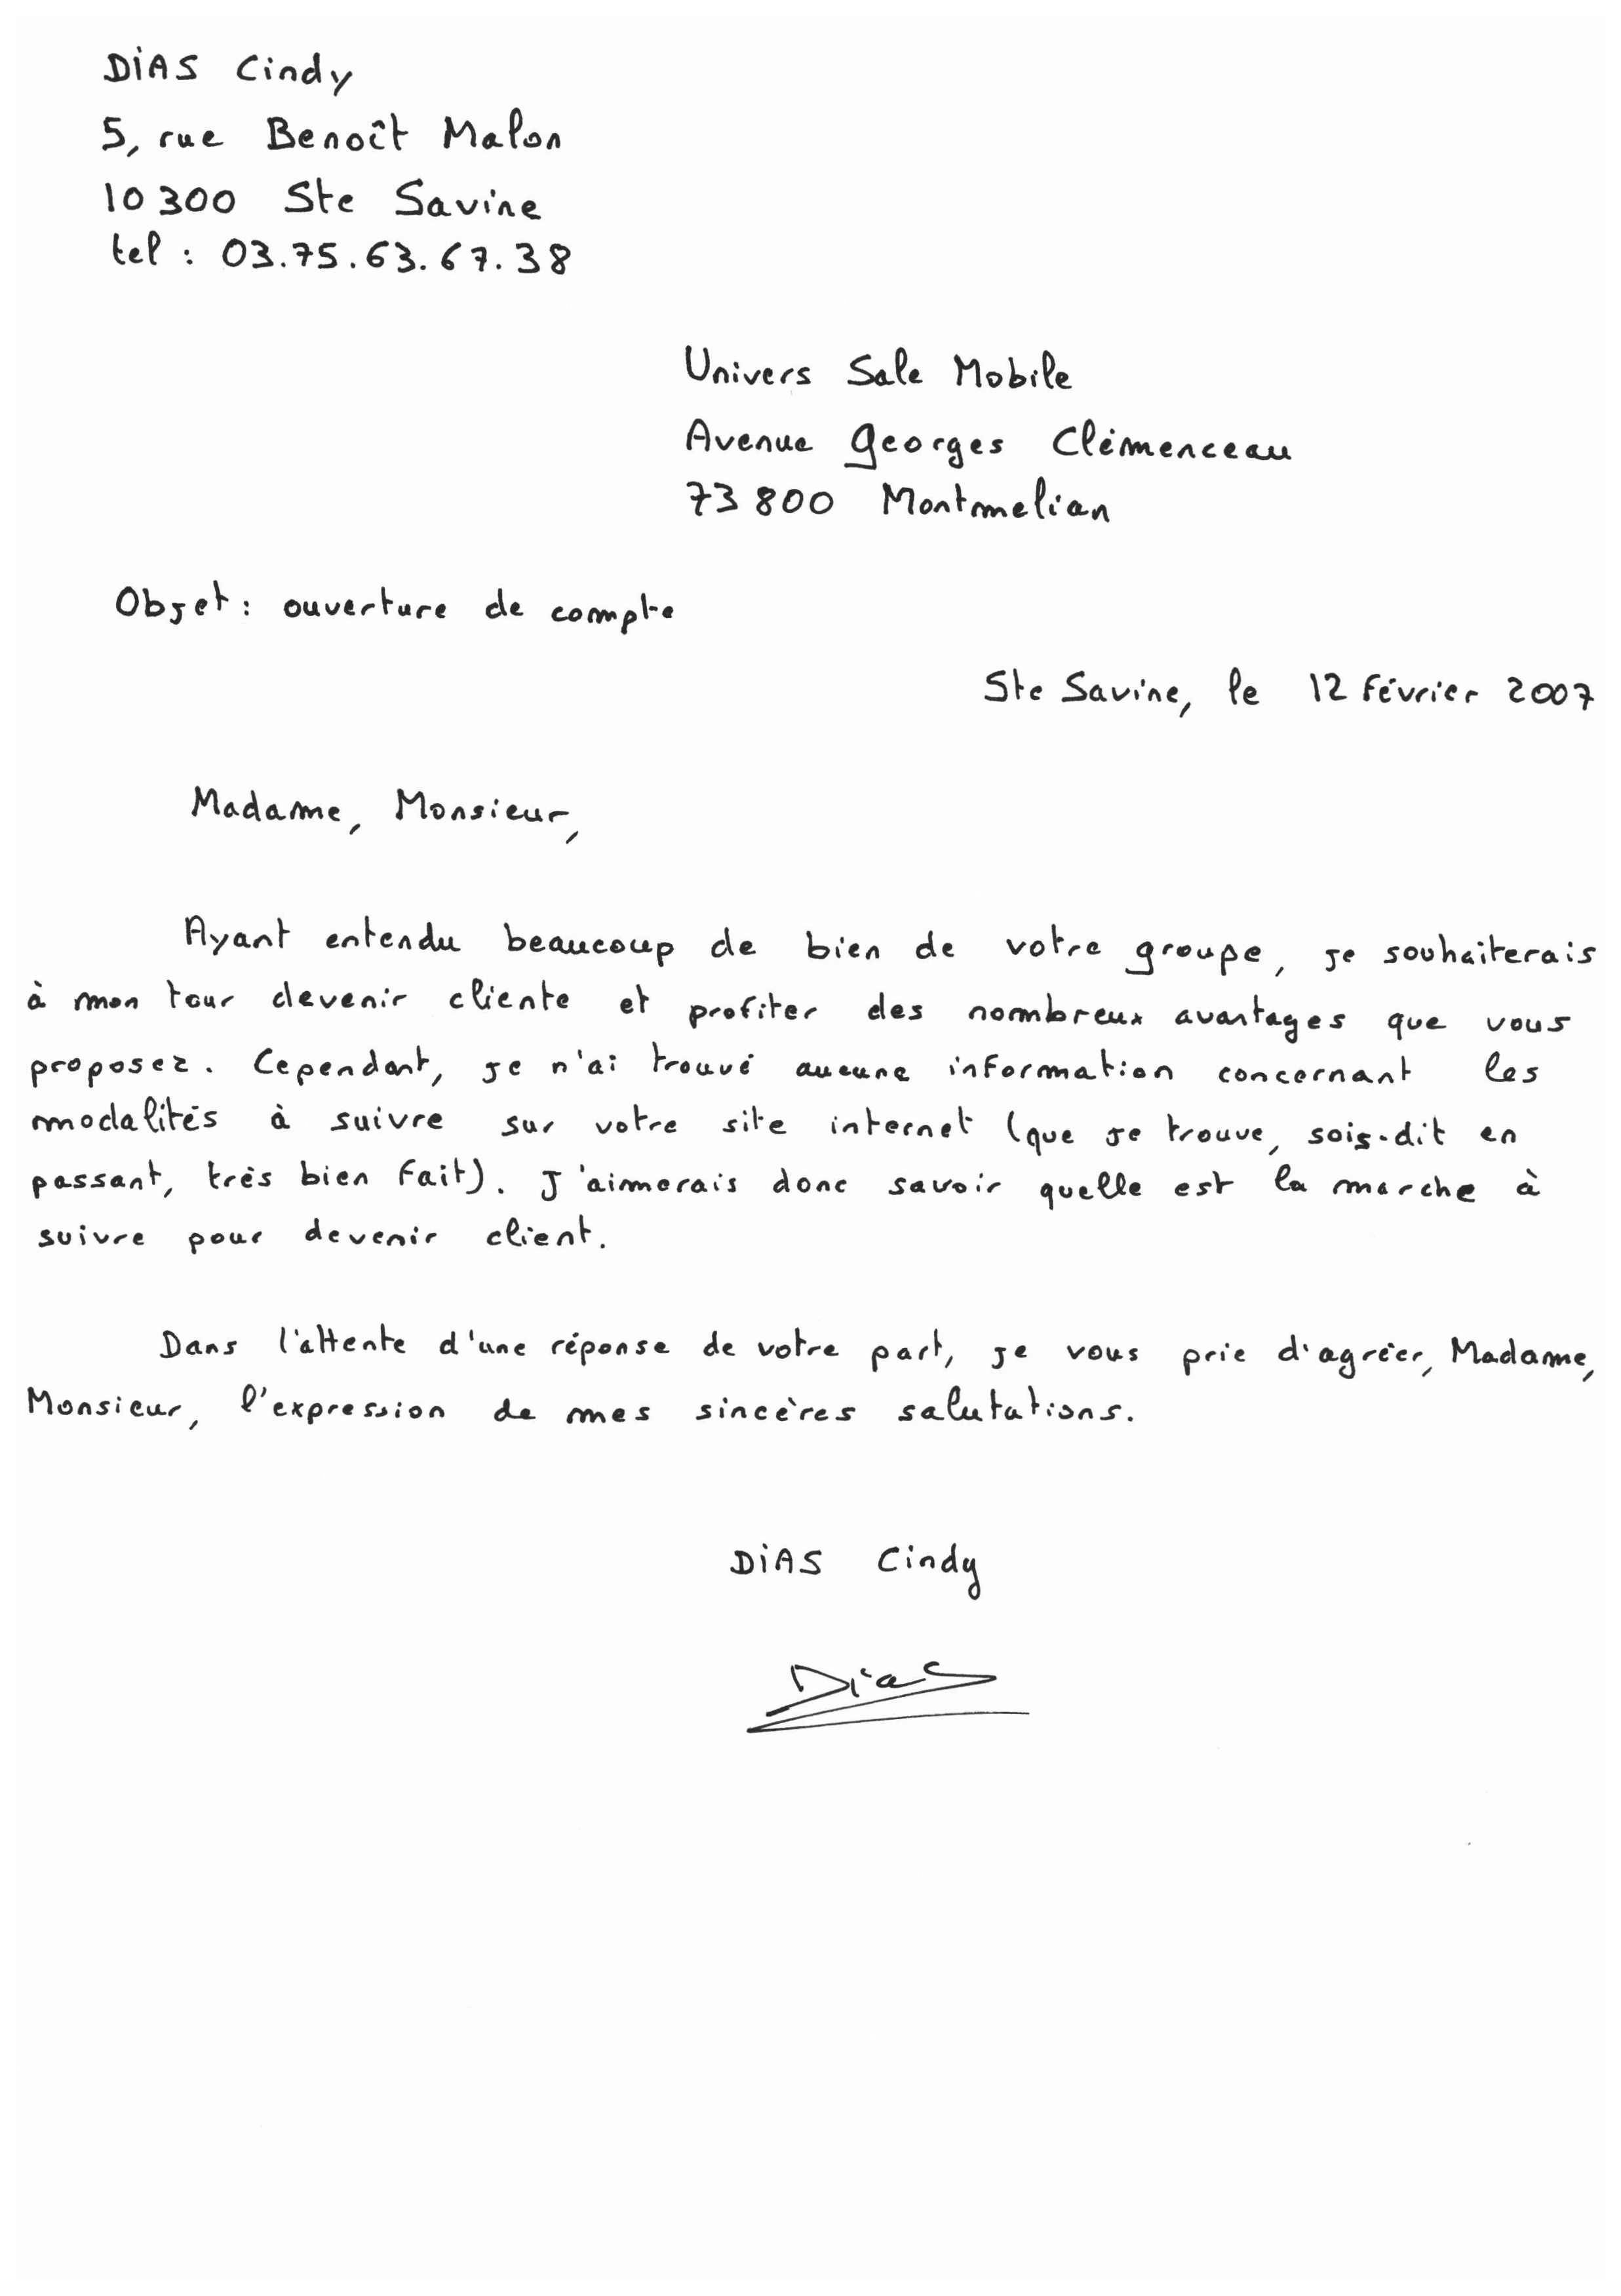 DiAS Cindy
5, rue Benoît Malon
10 300 Ste Savine
tel : 03.75.63.67.38
Univers Sale Mobile
Avenue Georges Clémenceau
73 800 Montmelian
Objet : ouverture de compte
Ste Savine, le 12 Février 2007
Madame, Monsieur,
Ayant entendu beaucoup de bien de votre groupe, je souhaiterais
à mon tour devenir cliente et profiter des nombreux avantages que vous
proposez. Cependant, je n'ai trouvé aucune information concernant les
modalités à suivre sur votre site internet (que je trouve, sois-dit en
passant, très bien fait). J'aimerais donc savoir quelle est la marche à
suivre pour devenir client.
Dans l'attente d'une réponse de votre part, je vous prie d'agréer, Madame,
Monsieur, l'expression de mes sincères salutations.
DiAS Cindy
Dias